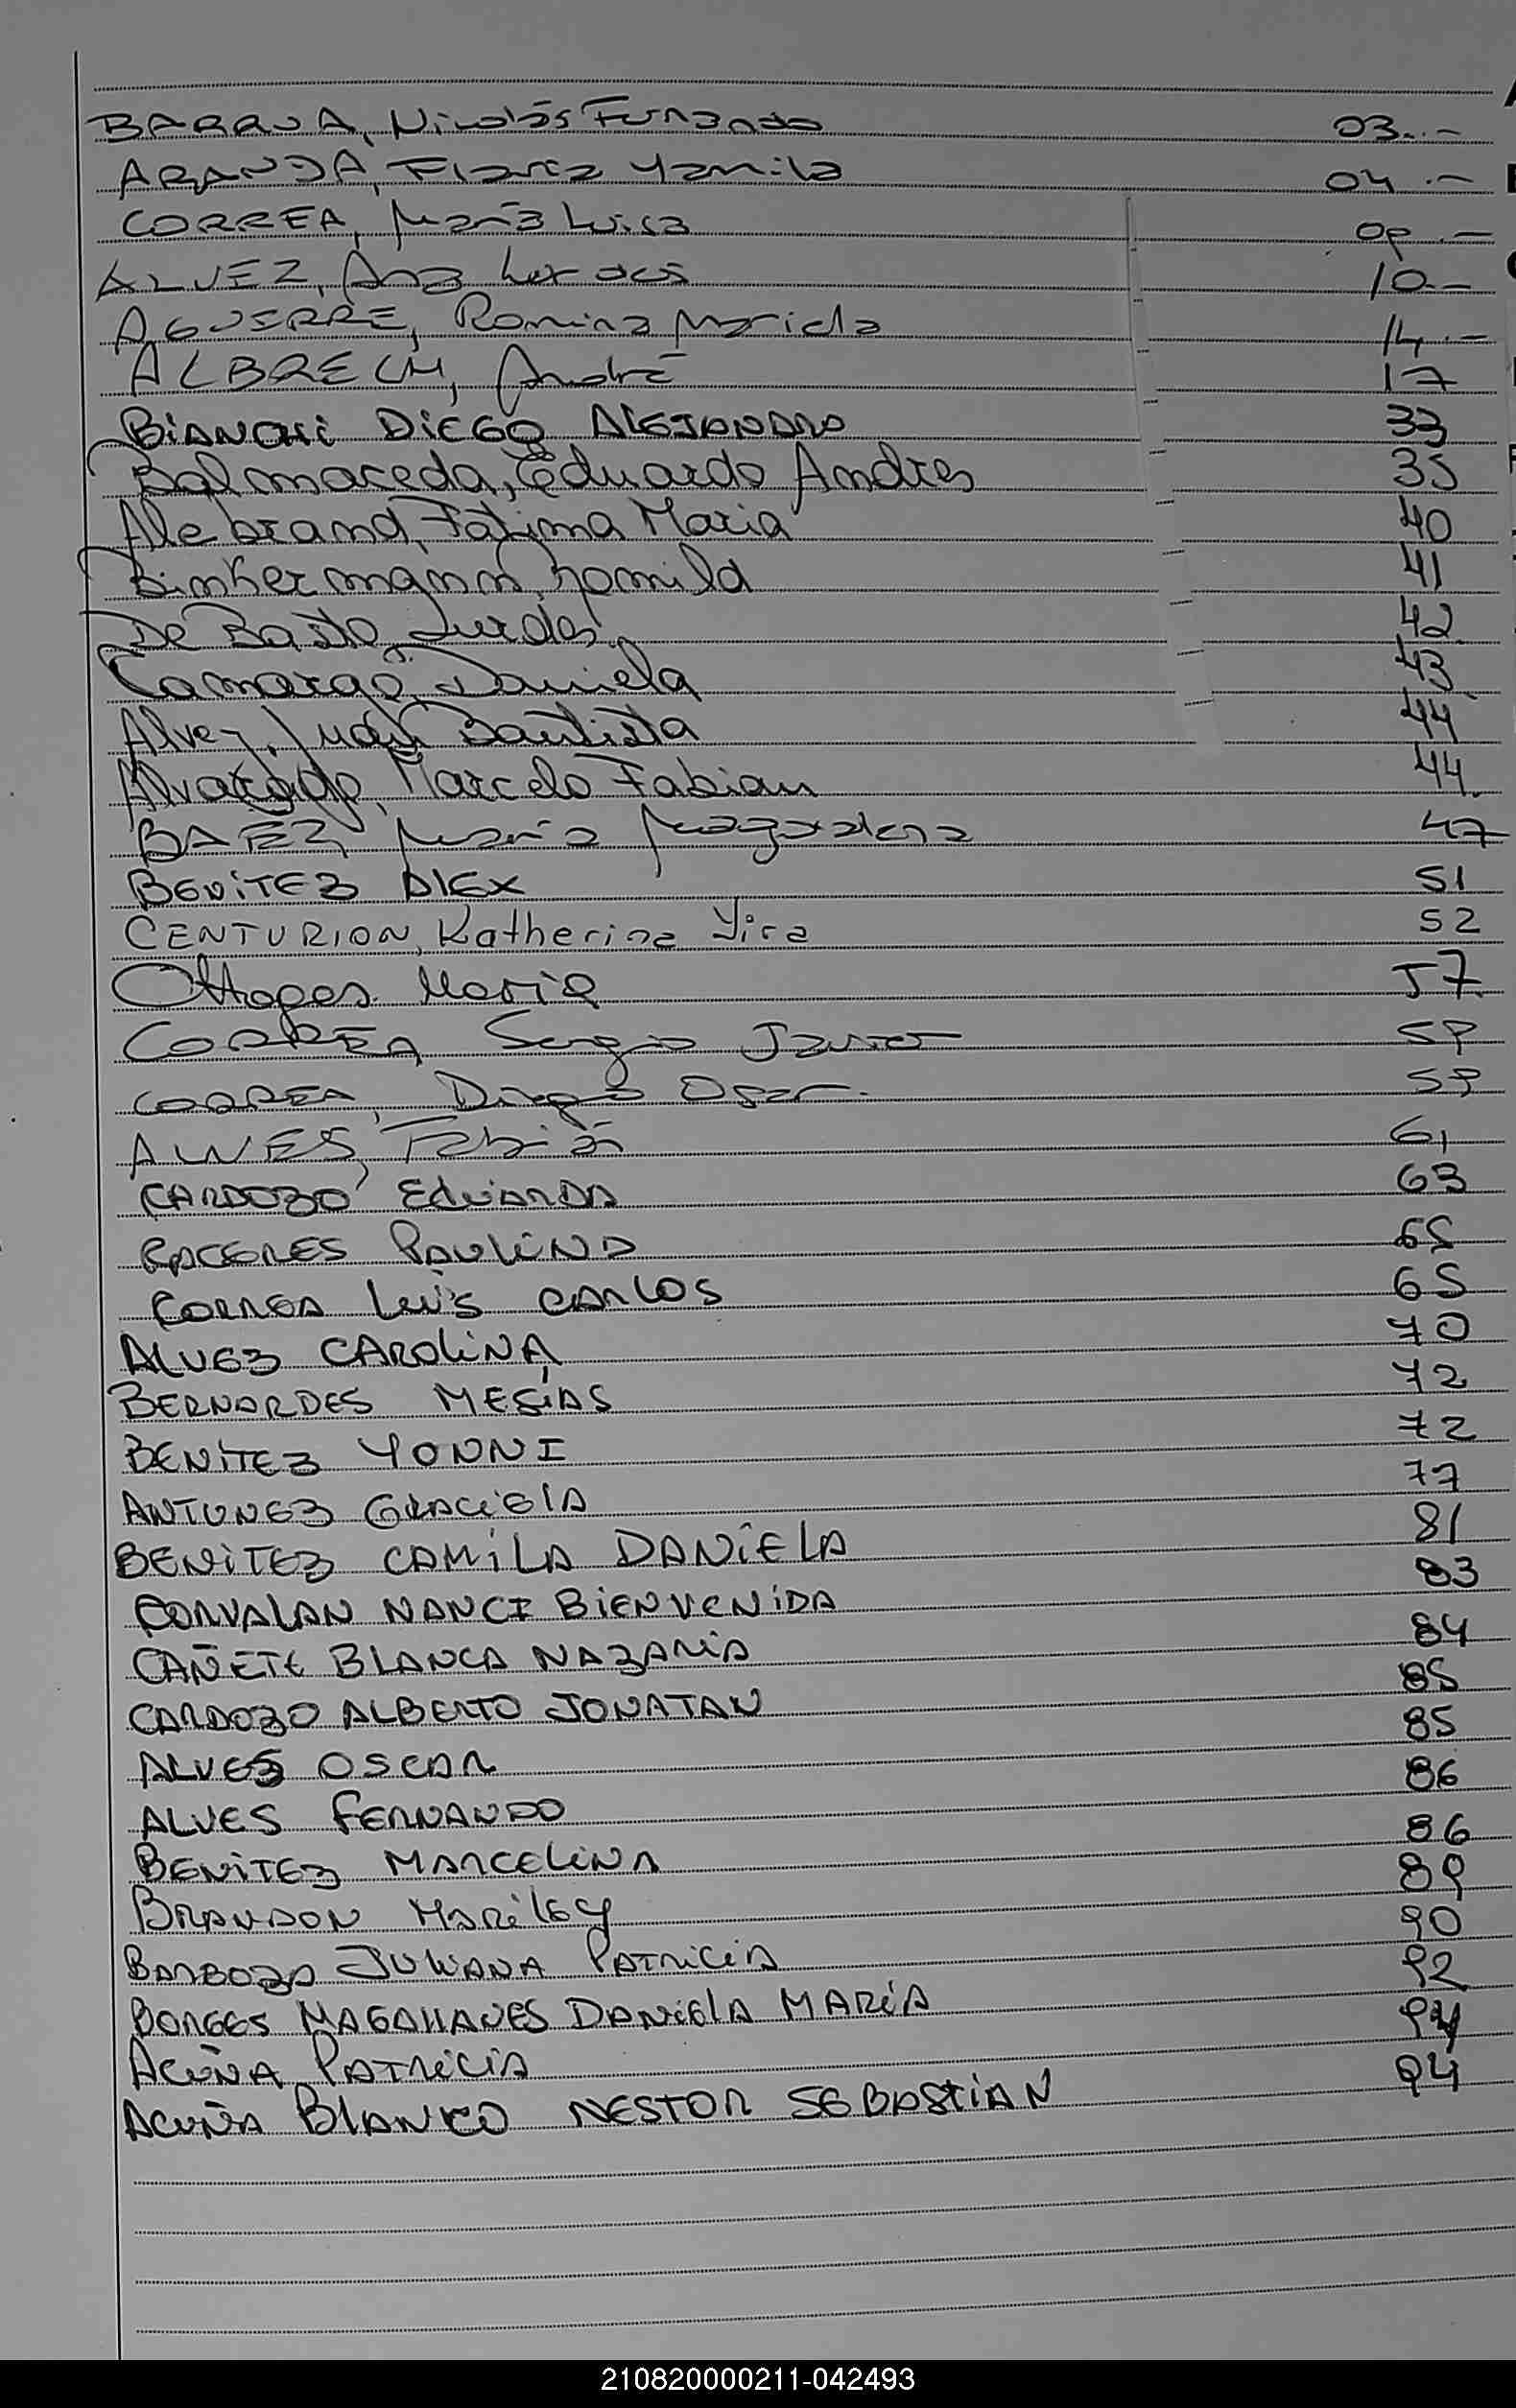 BARRUA, Nicolás Fernando 03.-
ARANDA, Flavia Yamila 04.-
CORREA, María Luisa 09.-
ALVEZ, Ana 10.-
AGUERRE, Romina Mariela 14.-
ALBRECH, André 17
BIANCHI DIEGO ALEJANDRO 33
Balmaceda, Eduardo Andres 35
Alebrand, Fátima Maria 40
Binkermann, Romilda 41
De Basto, Lurdes 42
Camargo, Daniela 43
Alvez, Juan Bautista 44
Alvarado, Marcelo Fabian 44
BAEZ, María Magdalena 47
BENITEZ ALEX 51
CENTURION, Katherine Yira 52
Maria 57
CORREA, Sergio Javier 59
CORREA, Diego Oscar 59
ALVES, Fabián 61
CARDOZO EduARDA 63
CACERES PAULINA 65
CORREA LUIS CARLOS 65
ALVEZ CAROLINA 70
BERNARDES MESIAS 72
BENITEZ YONNI 72
ANTUNEZ GRACIELA 77
BENITEZ CAMILA DANIELA 81
CORVALAN NANCI BIENVENIDA 83
CAÑETE BLANCA NAZARIA 84
CARDOZO ALBERTO JONATAN 85
ALVES OSCAR 85
ALVES FERNANDO 86
BENITEZ MARCELINA 86
BRANDON MARILEY 89
BARBOZA JULIANA PATRICIA 90
BORGES MAGALLANES DANIELA MARIA 92
ACUÑA PATRICIA 94
ACUÑA BLANCO NESTOR SEBASTIAN 94
210820000211-042493